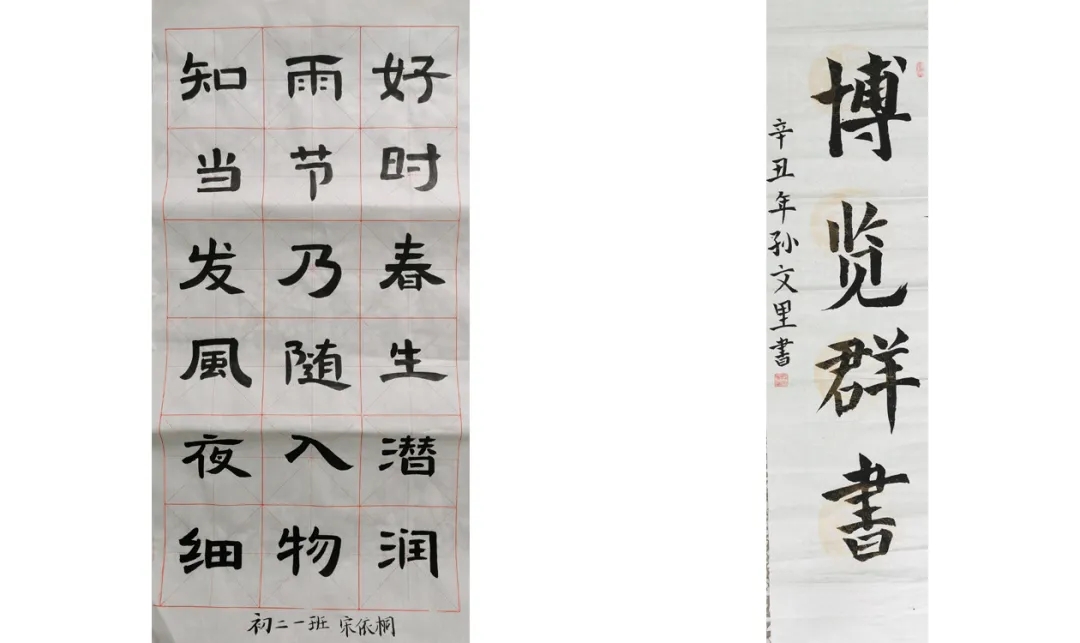 好时春生潜润
雨节乃随入物
知当发風夜细
初二一班 宋依桐
博览群書
辛丑年孙文里書